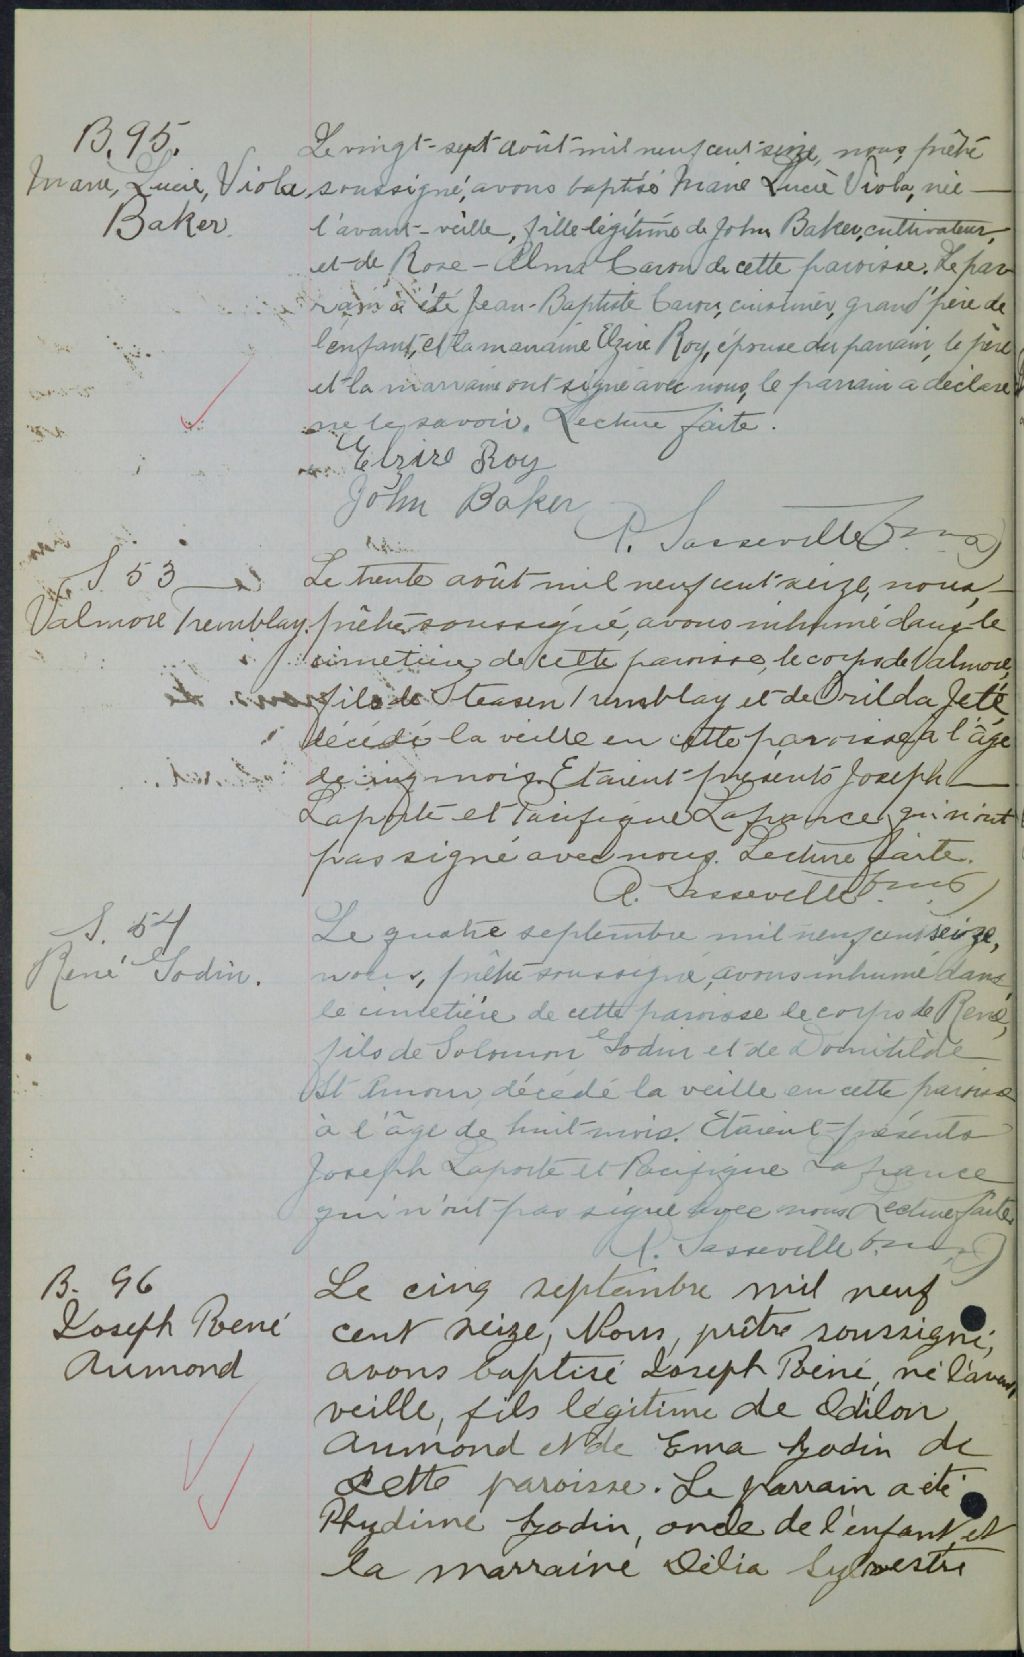 B. 95.
Marie, Lucie, Viola
Baker.
Le vingt-sept août mil neuf cent seize, nous, prêtre
soussigné, avons baptisé Marie Lucie Viola, née
l'avant-veille, fille légitime de John Baker, cultivateur,
et de Rose-Alma Caron de cette paroisse. Le par-
rain a été Jean-Baptiste Caron, cuisinier, grand'père de
l'enfant, et la marraine Elzire Roy, épouse du parrain, le père
et la marraine ont signé avec nous, le parrain a déclaré
ne le savoir. Lecture faite.
Elzire Roy
John Baker
P. Sasseville
S 53
Valmore Tremblay.
Le trente août mil neuf cent seize, nous,
prêtre soussigné, avons inhumé dans le
cimetière de cette paroisse, le corps de Valmore,
fils de Steasen Tremblay et de Orilda Jetté,
décédé la veille en cette paroisse, à l'âge
de cinq mois. Etaient présents Joseph
Laporte et Pacifique Lafrance qui n'ont
pas signé avec nous. Lecture faite.
P. Sasseville
S. 54
René Godin.
Le quatre septembre mil neuf cent seize,
nous, prêtre soussigné, avons inhumé dans
le cimetière de cette paroisse le corps de René,
fils de Solomon Godin et de Domitilde
St Amour, décédé la veille en cette paroisse
à l'âge de huit mois. Etaient présents
Joseph Laporte et Pacifique Lafrance
qui n'ont pas signé avec nous. Lecture faite.
P. Sasseville
B. 96
Joseph René
Aumond
Le cinq septembre mil neuf
cent seize, Nous, prêtre soussigné,
avons baptisé Joseph René, né l'avant
veille, fils légitime de Odilon
Aumond et de Ema Godin de
cette paroisse. Le parrain a été
Phydime Godin, oncle de l'enfant, et
la marraine, Délia Sylvestre